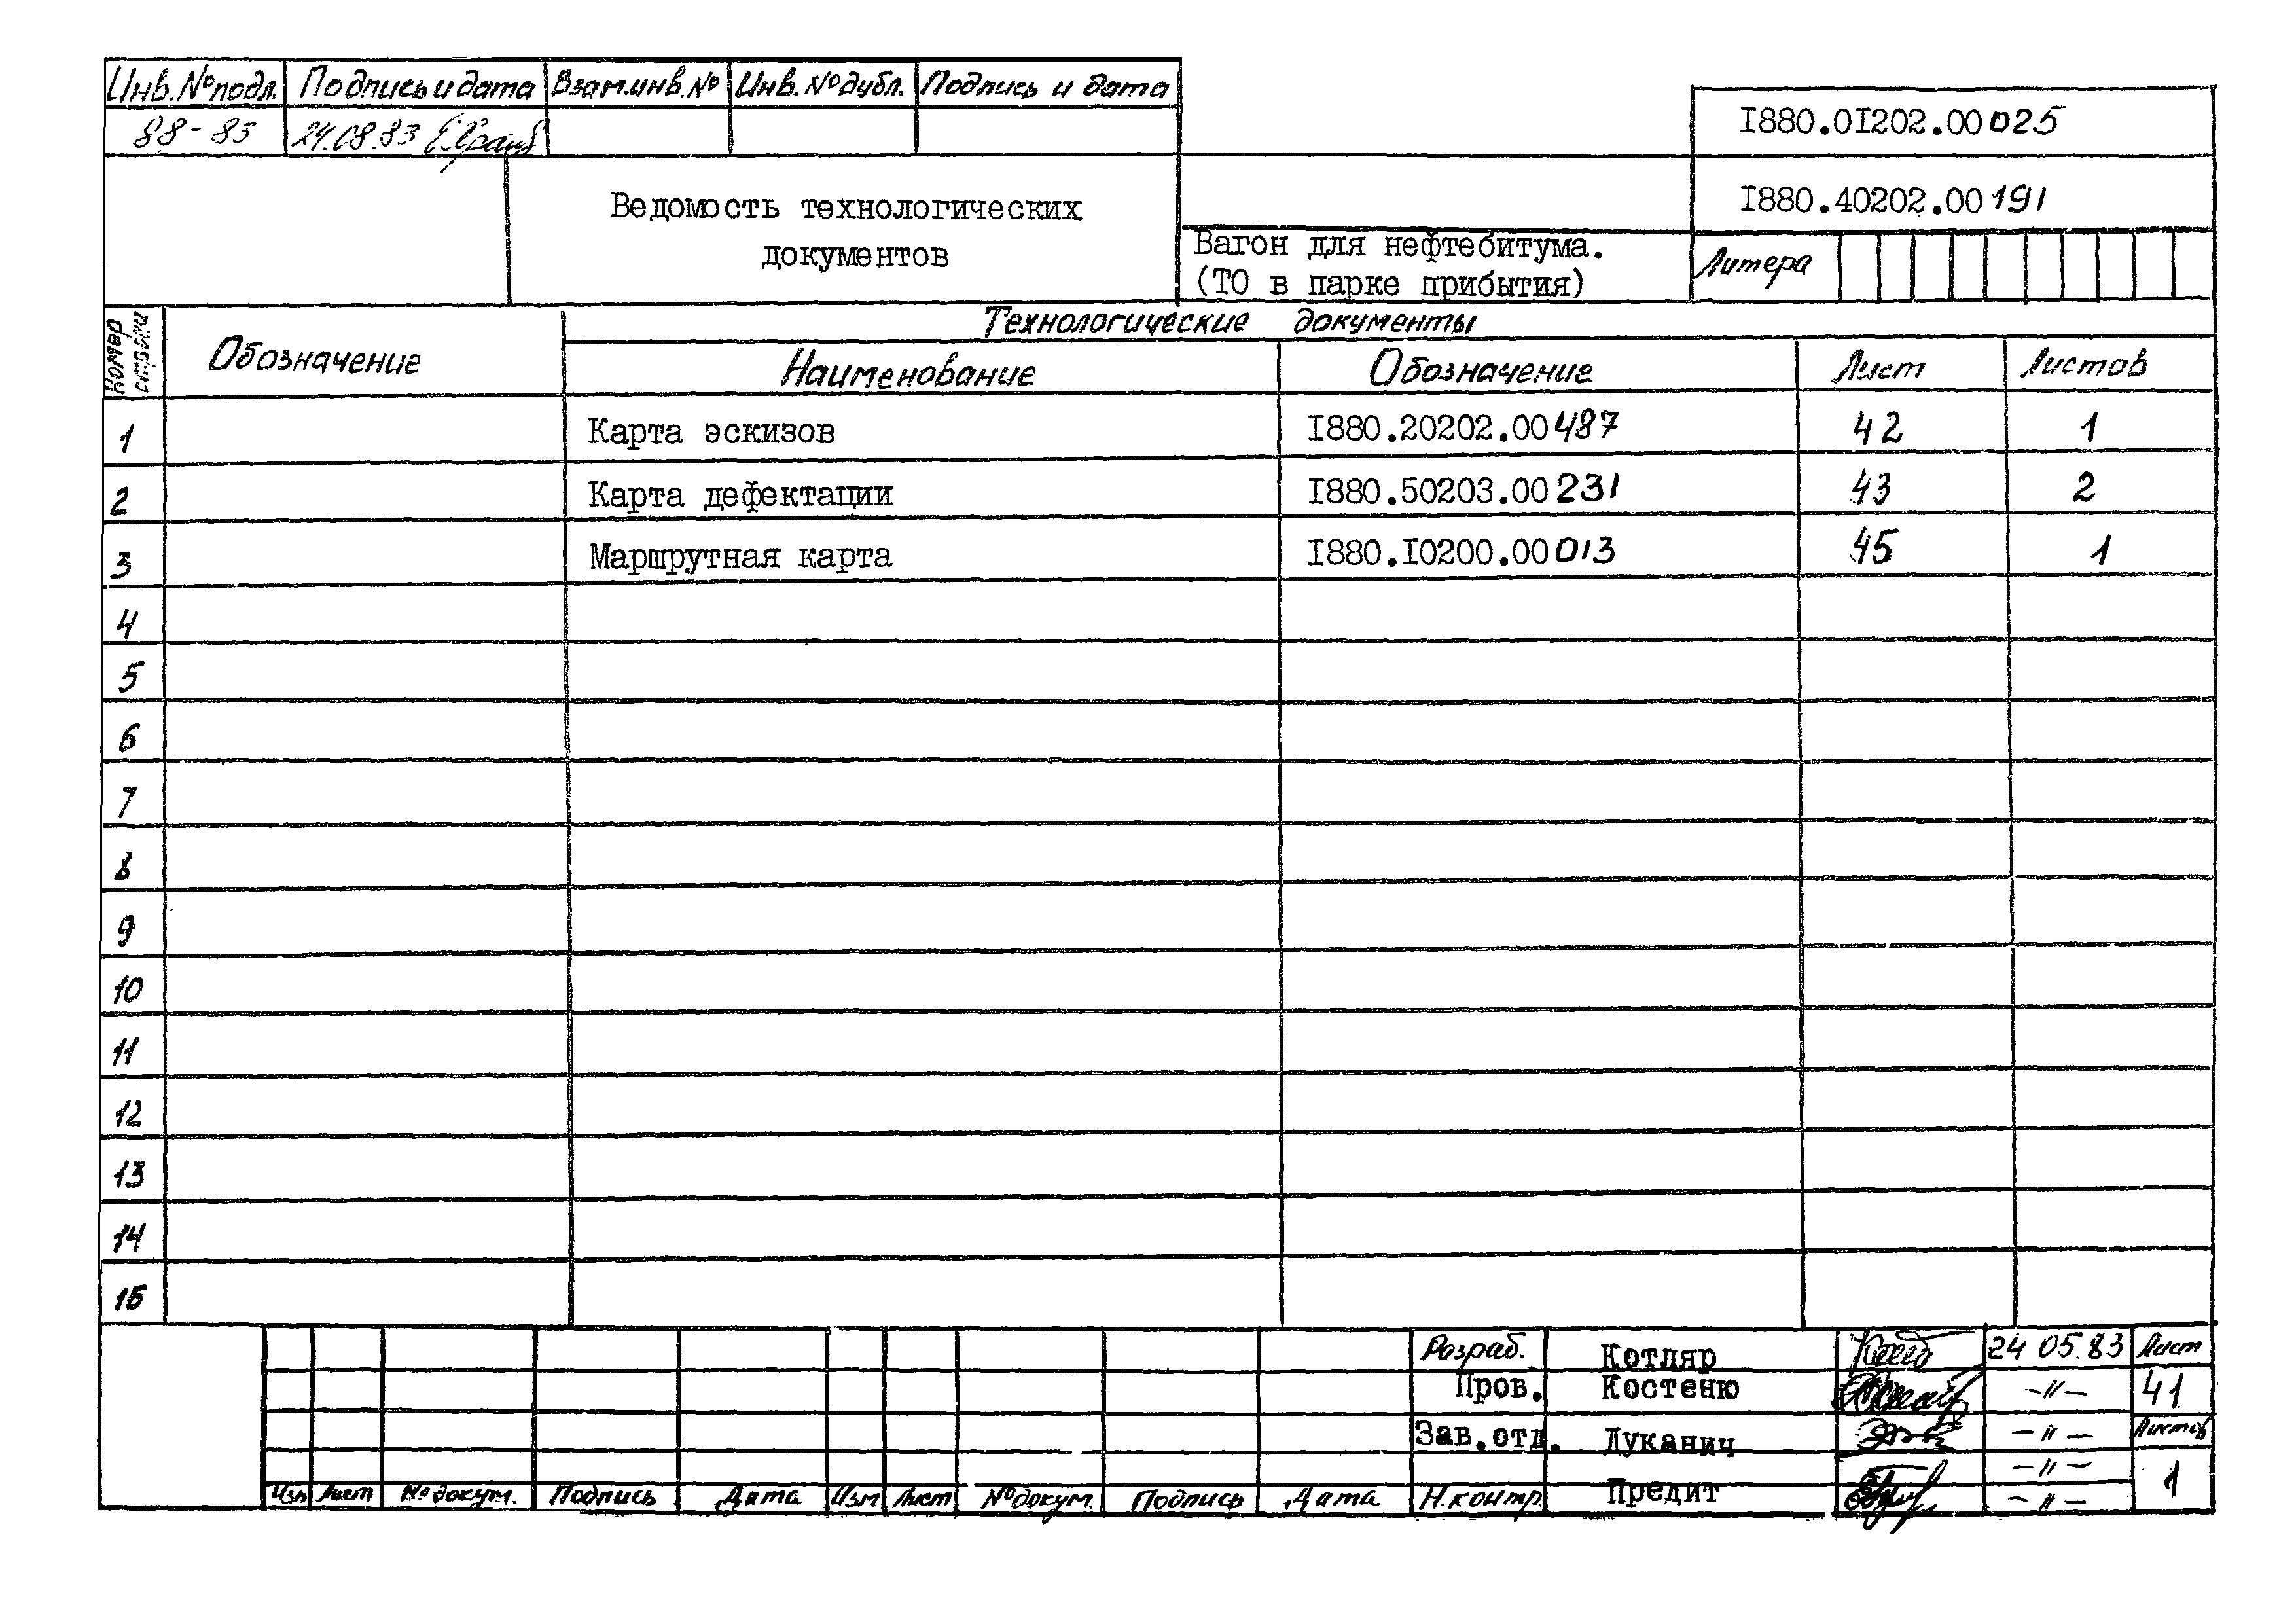 Инв.№подл. Подпись и дата Взам.инв.№ Инв.№дубл. Подпись и дата
88-83 24.08.83
I880.0I202.00 025
I880.40202.00 191
Ведомость технологических
документов
Вагон для нефтебитума.
(ТО в парке прибытия)
Литера
Номер строки
Обозначение
Технологические документы
Наименование Обозначение Лист Листов
1 Карта эскизов I880.20202.00 487 42 1
2 Карта дефектации I880.50203.00 231 43 2
3 Маршрутная карта I880.I0200.00 013 45 1
4
5
6
7
8
9
10
11
12
13
14
15
Разраб. Котляр 24 05.83 Лист
Пров. Костеню -//- 41
Зав.отд. Луканич -//- Листов
-//-
Изм Лист № докум. Подпись Дата Изм Лист № докум. Подпись Дата Н.контр. Предит -//- 1